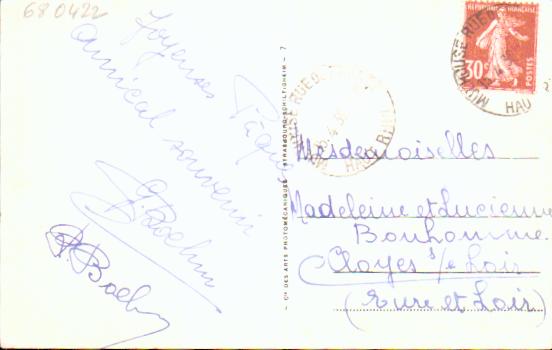 680422
Joyeuses Pâques
amical souvenir
Cie DES ARTS PHOTOMÉCANIQUES STRASBOURG-SCHILTIGHEIM — 7
REPUBLIQUE FRANÇAISE
30c
POSTES
HAUT RHIN
Mesdemoiselles
Madeleine et Lucienne
Bonhomme
Cloyes s/le Loir
(Eure et Loir)